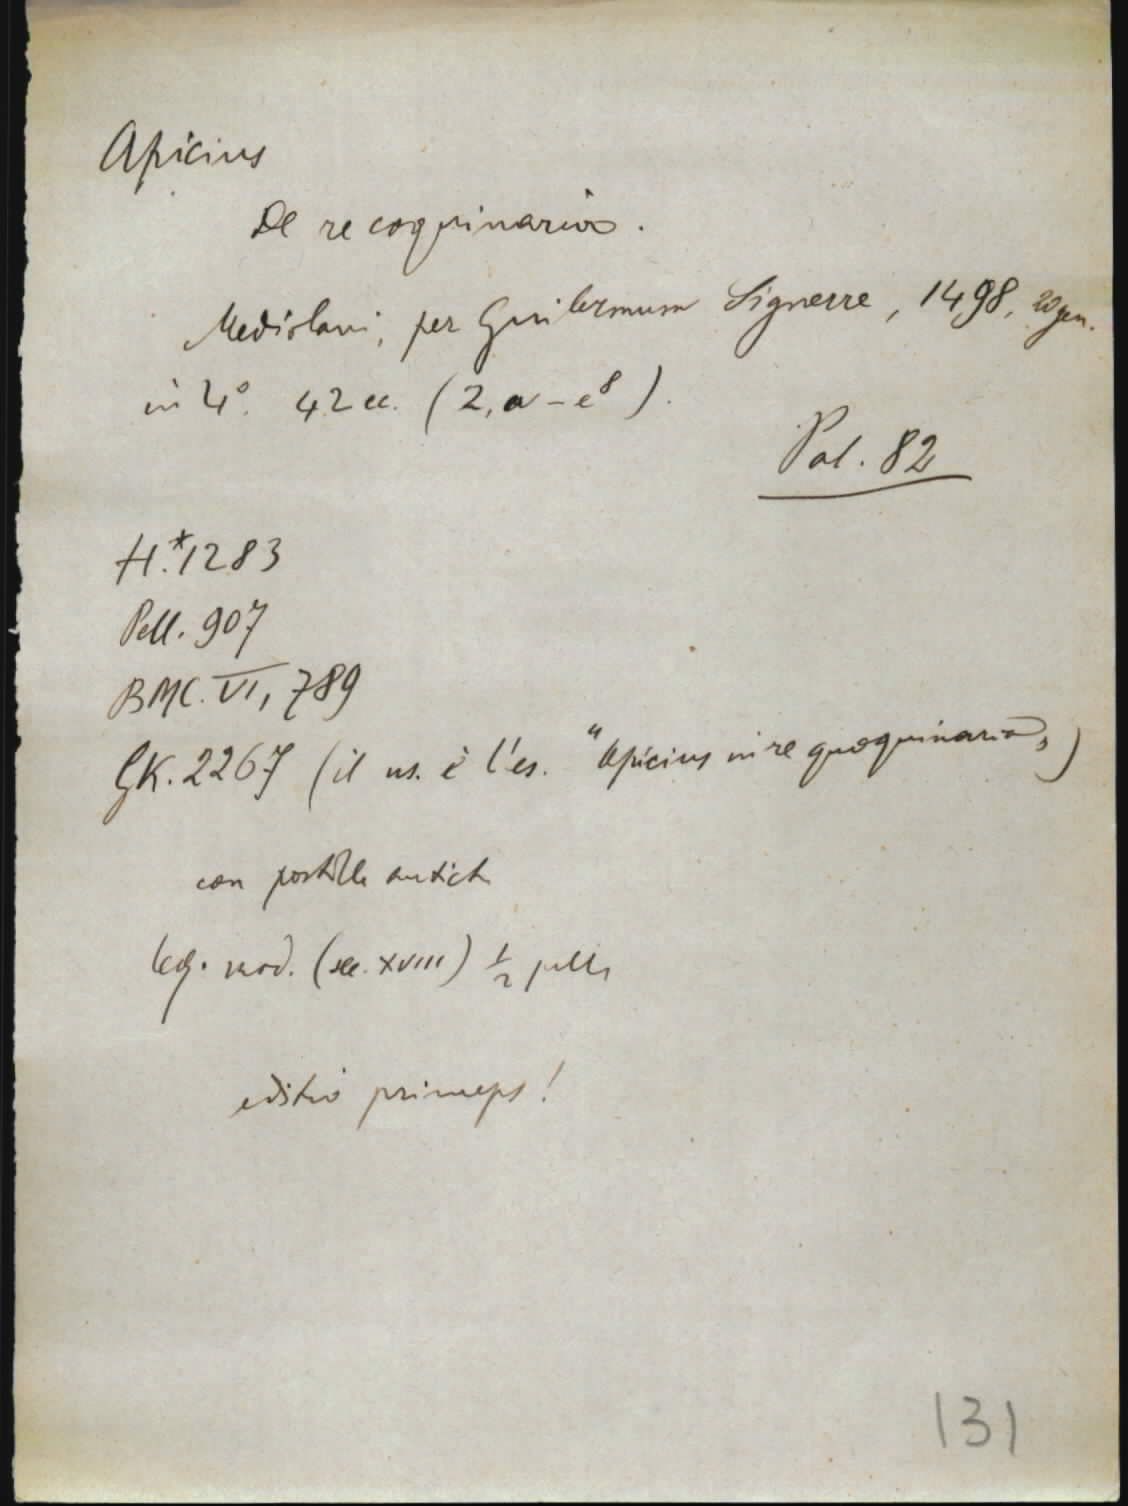 Apicius
De re coquinaria.
Mediolani, per Guilermum Signerre, 1498, 20 gen.
in 4°. 42 cc. (2, a-e⁸).
Pal. 82
H.*1283
Pell. 907
BMC. VI, 789
GK. 2267 (il ns. è l'es. "Apicius in re quoquinaria")
con postille antiche
leg. mod. (sec. XVIII) ½ pelle
editio princeps!
131